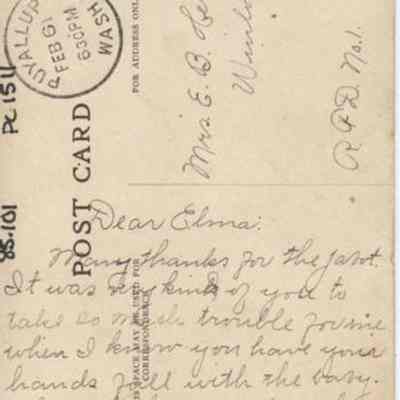 PUYALLUP
FEB 6
630PM
WASH
FOR ADDRESS ONL
Mrs E. B.
R F D. No. 1.
POST CARD
PC 154
85.101
SPACE MAY BE USED FOR
CORRESPONDENCE
Dear Elma:
Many thanks for the
It was very kind of you to
take so much trouble for me
when I know you have your
hands full with the baby.